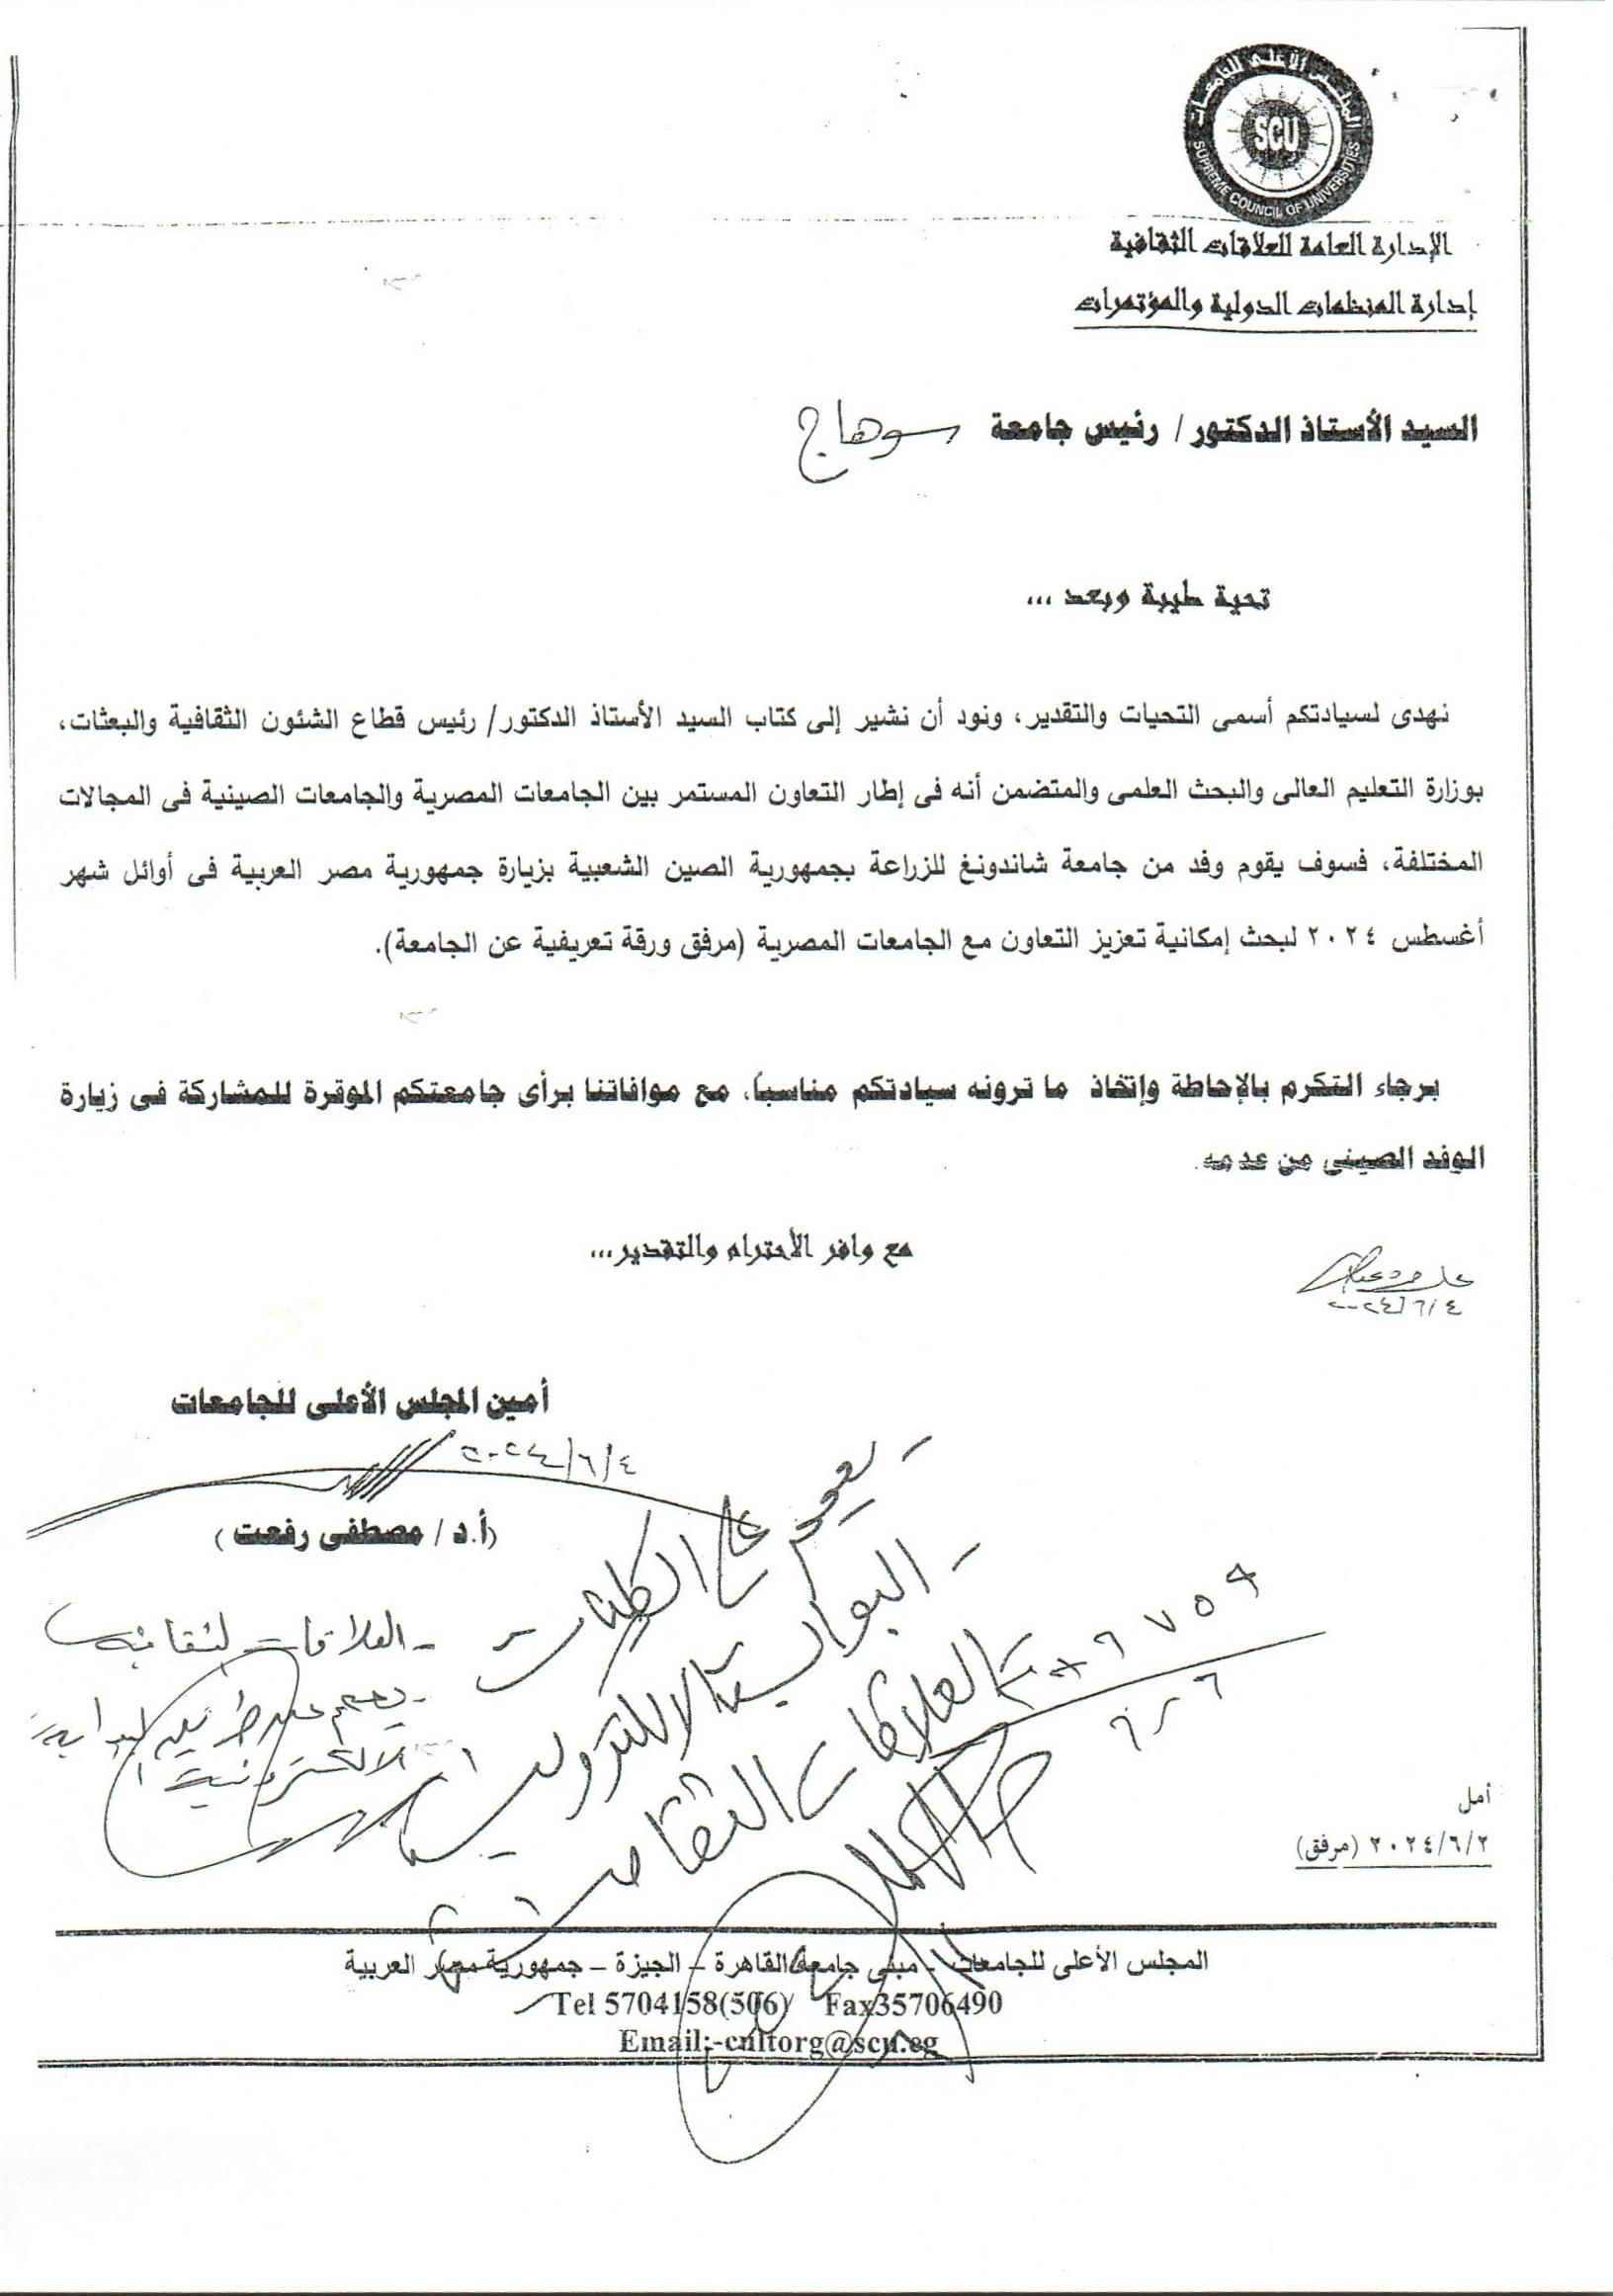 المجلس الأعلى للجامعات
SCU
SUPREME COUNCIL OF UNIVERSITIES
الإدارة العامة للعلاقات الثقافية
إدارة المنظمات الدولية والمؤتمرات
السيد الأستاذ الدكتور/ رئيس جامعة سوهاج
تحية طيبة وبعد ...
نهدى لسيادتكم أسمى التحيات والتقدير، ونود أن نشير إلى كتاب السيد الأستاذ الدكتور/ رئيس قطاع الشئون الثقافية والبعثات،
بوزارة التعليم العالى والبحث العلمى والمتضمن أنه فى إطار التعاون المستمر بين الجامعات المصرية والجامعات الصينية فى المجالات
المختلفة، فسوف يقوم وفد من جامعة شاندونغ للزراعة بجمهورية الصين الشعبية بزيارة جمهورية مصر العربية فى أوائل شهر
أغسطس ٢٠٢٤ لبحث إمكانية تعزيز التعاون مع الجامعات المصرية (مرفق ورقة تعريفية عن الجامعة).
برجاء التكرم بالإحاطة وإتخاذ ما ترونه سيادتكم مناسباً، مع موافاتنا برأى جامعتكم الموقرة للمشاركة فى زيارة
الوفد الصينى من عدمه.
مع وافر الأحترام والتقدير...
٢٠٢٤/٦/٤
أمين المجلس الأعلى للجامعات
٢٠٢٤/٦/٤
(أ.د / مصطفى رفعت )
- يعمم على الكليات
- البوابة الالكترونية
- العلاقات الثقافية
- العلاقات الثقافية
- يعمم عن طريق البوابة
الالكترونية
٦٧٥٩
٦/٦
أمل
٢٠٢٤/٦/٢ (مرفق)
المجلس الأعلى للجامعات - مبنى جامعة القاهرة – الجيزة – جمهورية مصر العربية
Tel 5704158(506) Fax35706490
Email:-cultorg@scu.eg